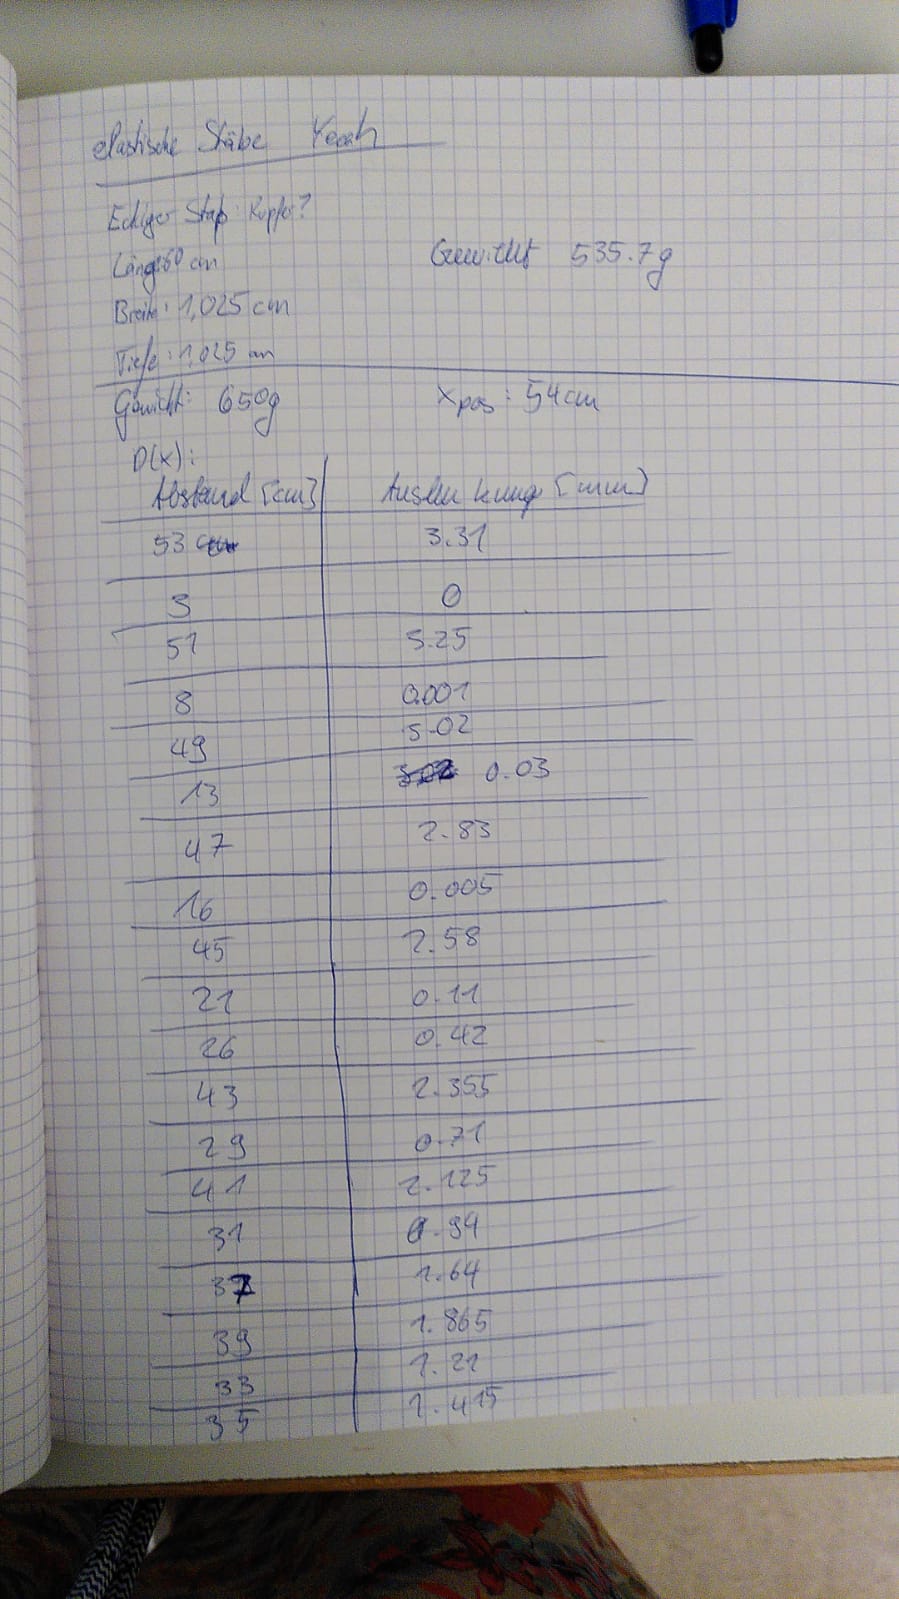 elastische Stäbe Yeah
Eckiger Stab: Kupfer?
Länge: 60 cm Gewicht 535.7g
Breite: 1,025 cm
Tiefe: 1,025 cm
Gewicht: 650g xpos: 54cm
D(x):
Abstand [cm] Auslenkung [mm]
53 3.31
3 0
51 3.25
8 0.001
49 3.02
13 0.03
47 2.83
16 0.005
45 2.58
21 0.11
26 0.42
43 2.355
29 0.71
41 2.125
31 0.94
37 1.64
39 1.865
33 1.21
35 1.415